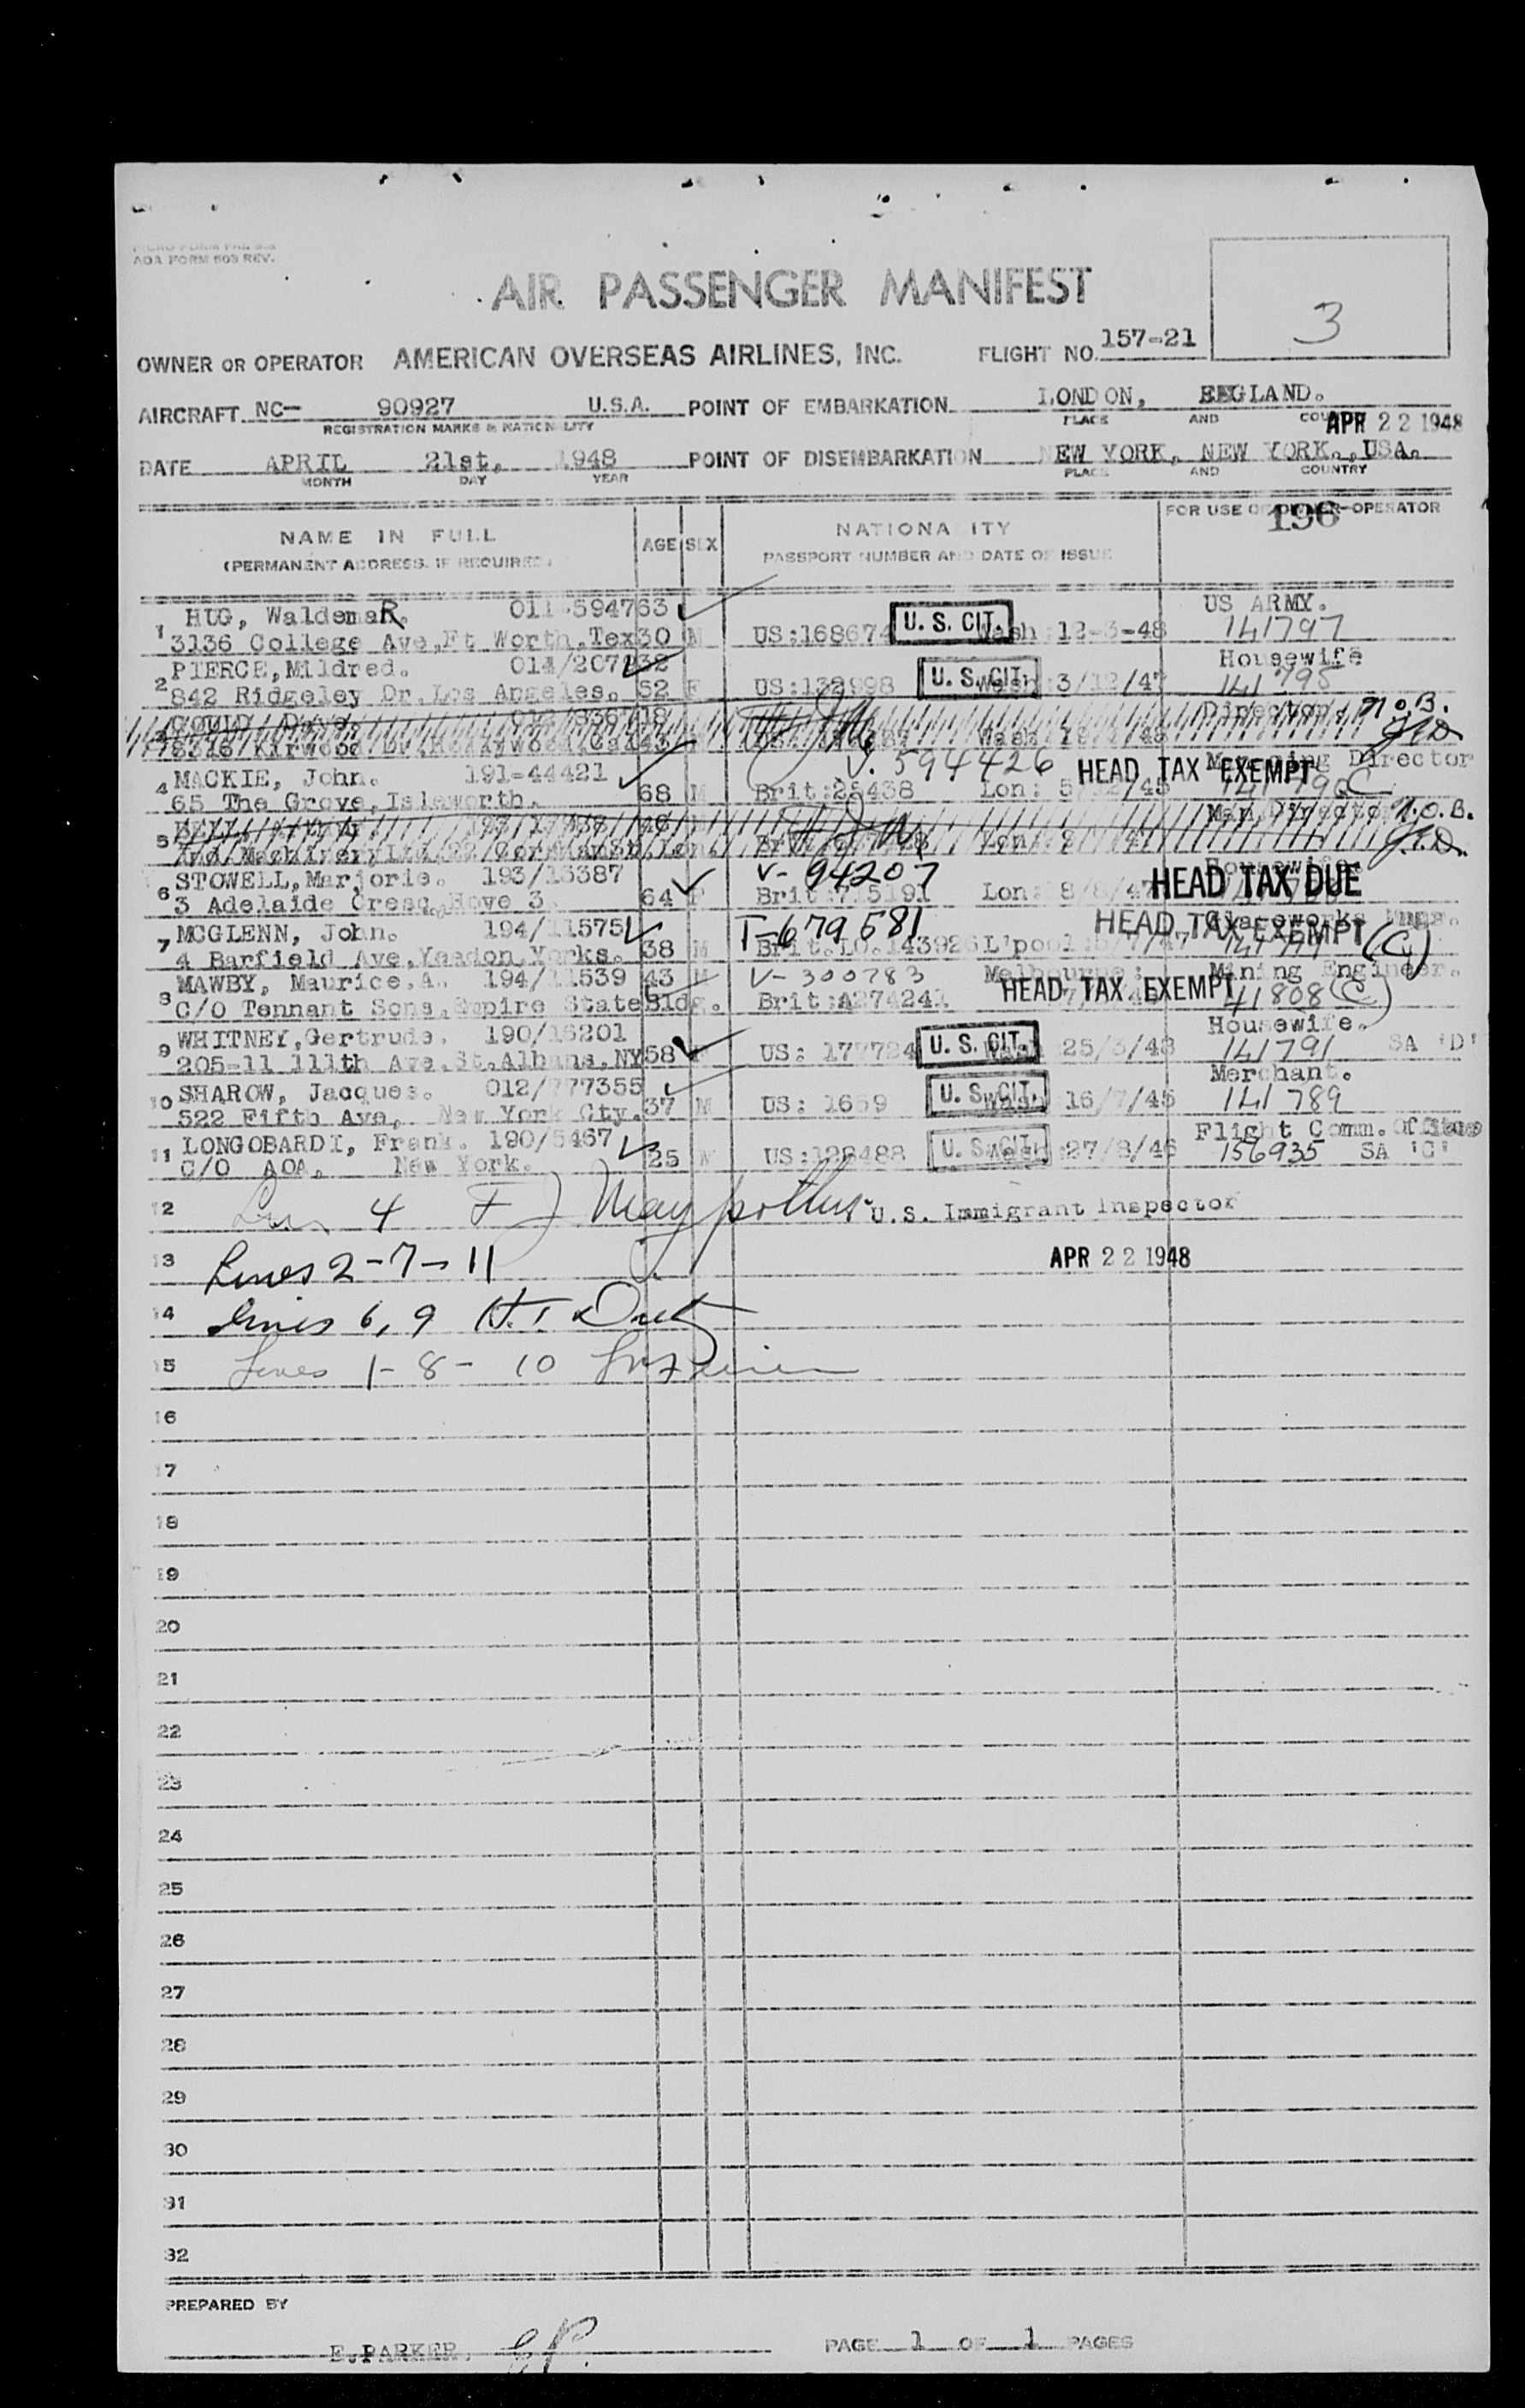 AOA FORM 609 REV.
AIR PASSENGER MANIFEST
3
OWNER OR OPERATOR AMERICAN OVERSEAS AIRLINES, INC. FLIGHT NO. 157-21
AIRCRAFT NC- 90927 U.S.A. POINT OF EMBARKATION LONDON, ENGLAND.
REGISTRATION MARKS & NATIONALITY PLACE AND
APR 22 1948
DATE APRIL 21st, 1948 POINT OF DISEMBARKATION NEW YORK, NEW YORK., USA.
MONTH DAY YEAR PLACE AND COUNTRY
NAME IN FULL AGE SEX NATIONA ITY FOR USE OF OWNER-OPERATOR
196
(PERMANENT ADDRESS, IF REQUIRED) PASSPORT NUMBER AND DATE OF ISSUE
HUG, WaldemaR. 011-594763 US ARMY.
1 3136 College Ave,Ft Worth,Tex 30 M US:168674 U. S. CIT. Wash 12-3-48 141797
PIERCE,Mildred. Housewife
2 842 Ridgeley Dr.Los Angeles. 52 F US:132998 U. S. CIT. Wash:3/12/47 141795
GOULD Director N.O.B.
8316 Kirwood Dr. Hollywood,Ca 43
MACKIE, John. 191-44421 V. 594426 HEAD TAX EXEMPT Managing Director
4 65 The Grove,Isleworth. 68 M Brit:25438 Lon: C
Man.Director N.O.B.
5 And Machinery Ltd,
STOWELL,Marjorie. 193/13387 V- 94207 Housewife.
6 3 Adelaide Cresc,Hove 3. 64 F Brit:715191 Lon: 8/8/47 HEAD TAX DUE
MCGLENN, John. 194/11575 T-679581 HEAD TAX EXEMPT (C)
7 4 Barfield Ave,Yeadon,Yorks. 38 M Brit.LO.143926 L'pool
MAWBY, Maurice.A. 194/11539 43 M V- 300783 Melbourne: Mining Engineer.
8 C/O Tennant Sons,Empire State Bldg. Brit:A274241 HEAD TAX EXEMPT 41808 (C)
WHITNEY,Gertrude. 190/16201 Housewife.
9 205-11 111th Ave,St.Albans,NY 58 US: 177724 U. S. CIT. 25/3/48 141791 SA 'D'
SHAROW, Jacques. 012/777355 Merchant.
10 522 Fifth Ave, New York Cty. 37 M US: 1659 U. S. CIT. Wash 16/7/45 141789
LONGOBARDI, Frank. 190/5467 Flight Comm.
11 C/O AOA, New York. 25 M US:128488 U. S. CIT. 27/8/46 156935 SA 'C'
12 4 U.S. Immigrant Inspector
13 Lines 2-7-11 APR 22 1948
14 Lines 6, 9 H.T Due
15 Lines 1-8-10
16
17
18
19
20
21
22
23
24
25
26
27
28
29
30
31
32
PREPARED BY
E.PARKER. EP. PAGE 1 OF 1 PAGES